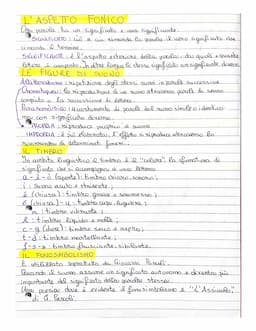 L'ASPETTO FONICO
Ogni parola ha un significato e una significante.
SIGNIFICATO: ciò a cui rimanda la parola il suono significato che
ci ricorda il termine.
SIGNIFICANTE: è l'aspetto esteriore della parola: dai quali e quante
lettere è composto. In altre lingue lo stesso significato un significante diverso
LE FIGURE DI SUONO
Allitterazione: ripetizione degli stessi suoni in parole successive
Onomatopea: la riproduzione di un suono attraverso parole di senso
compiuto o la successione di lettere.
Paronomasia: accostamento di parole dal suono simile o identico
ma con significato diverso.
PROPRIA: riproduce proprio il suono
IMPROPRIA: è più elaborata, l'effetto si riproduce attraverso la
successione di determinati fonemi.
IL TIMBRO
In ambito linguistico il timbro è il "colore", la sfumatura di
significato che si accompagna a una lettera
a - e - o (aperte): timbro chiaro, sonoro;
i: suono acuto e stridente;
o (chiusa): timbro grave e sommesso;
(chiusa) - u: timbro cupo, lugubre;
r: timbro vibrante;
l: timbro liquido e molle;
c - g (dure): timbro secco e aspro;
t - d: timbro martellante;
f - s - z: timbro frusciante, sibilante.
IL FONOSIMBOLISMO
È utilizzato soprattutto da Giovanni Pascoli.
Quando il suono assume un significato autonomo e diventa più
importante del significato della parola stessa.
Una poesia dove è evidente il fonosimbolismo è "L'Assiuolo"
di G. Pascoli.